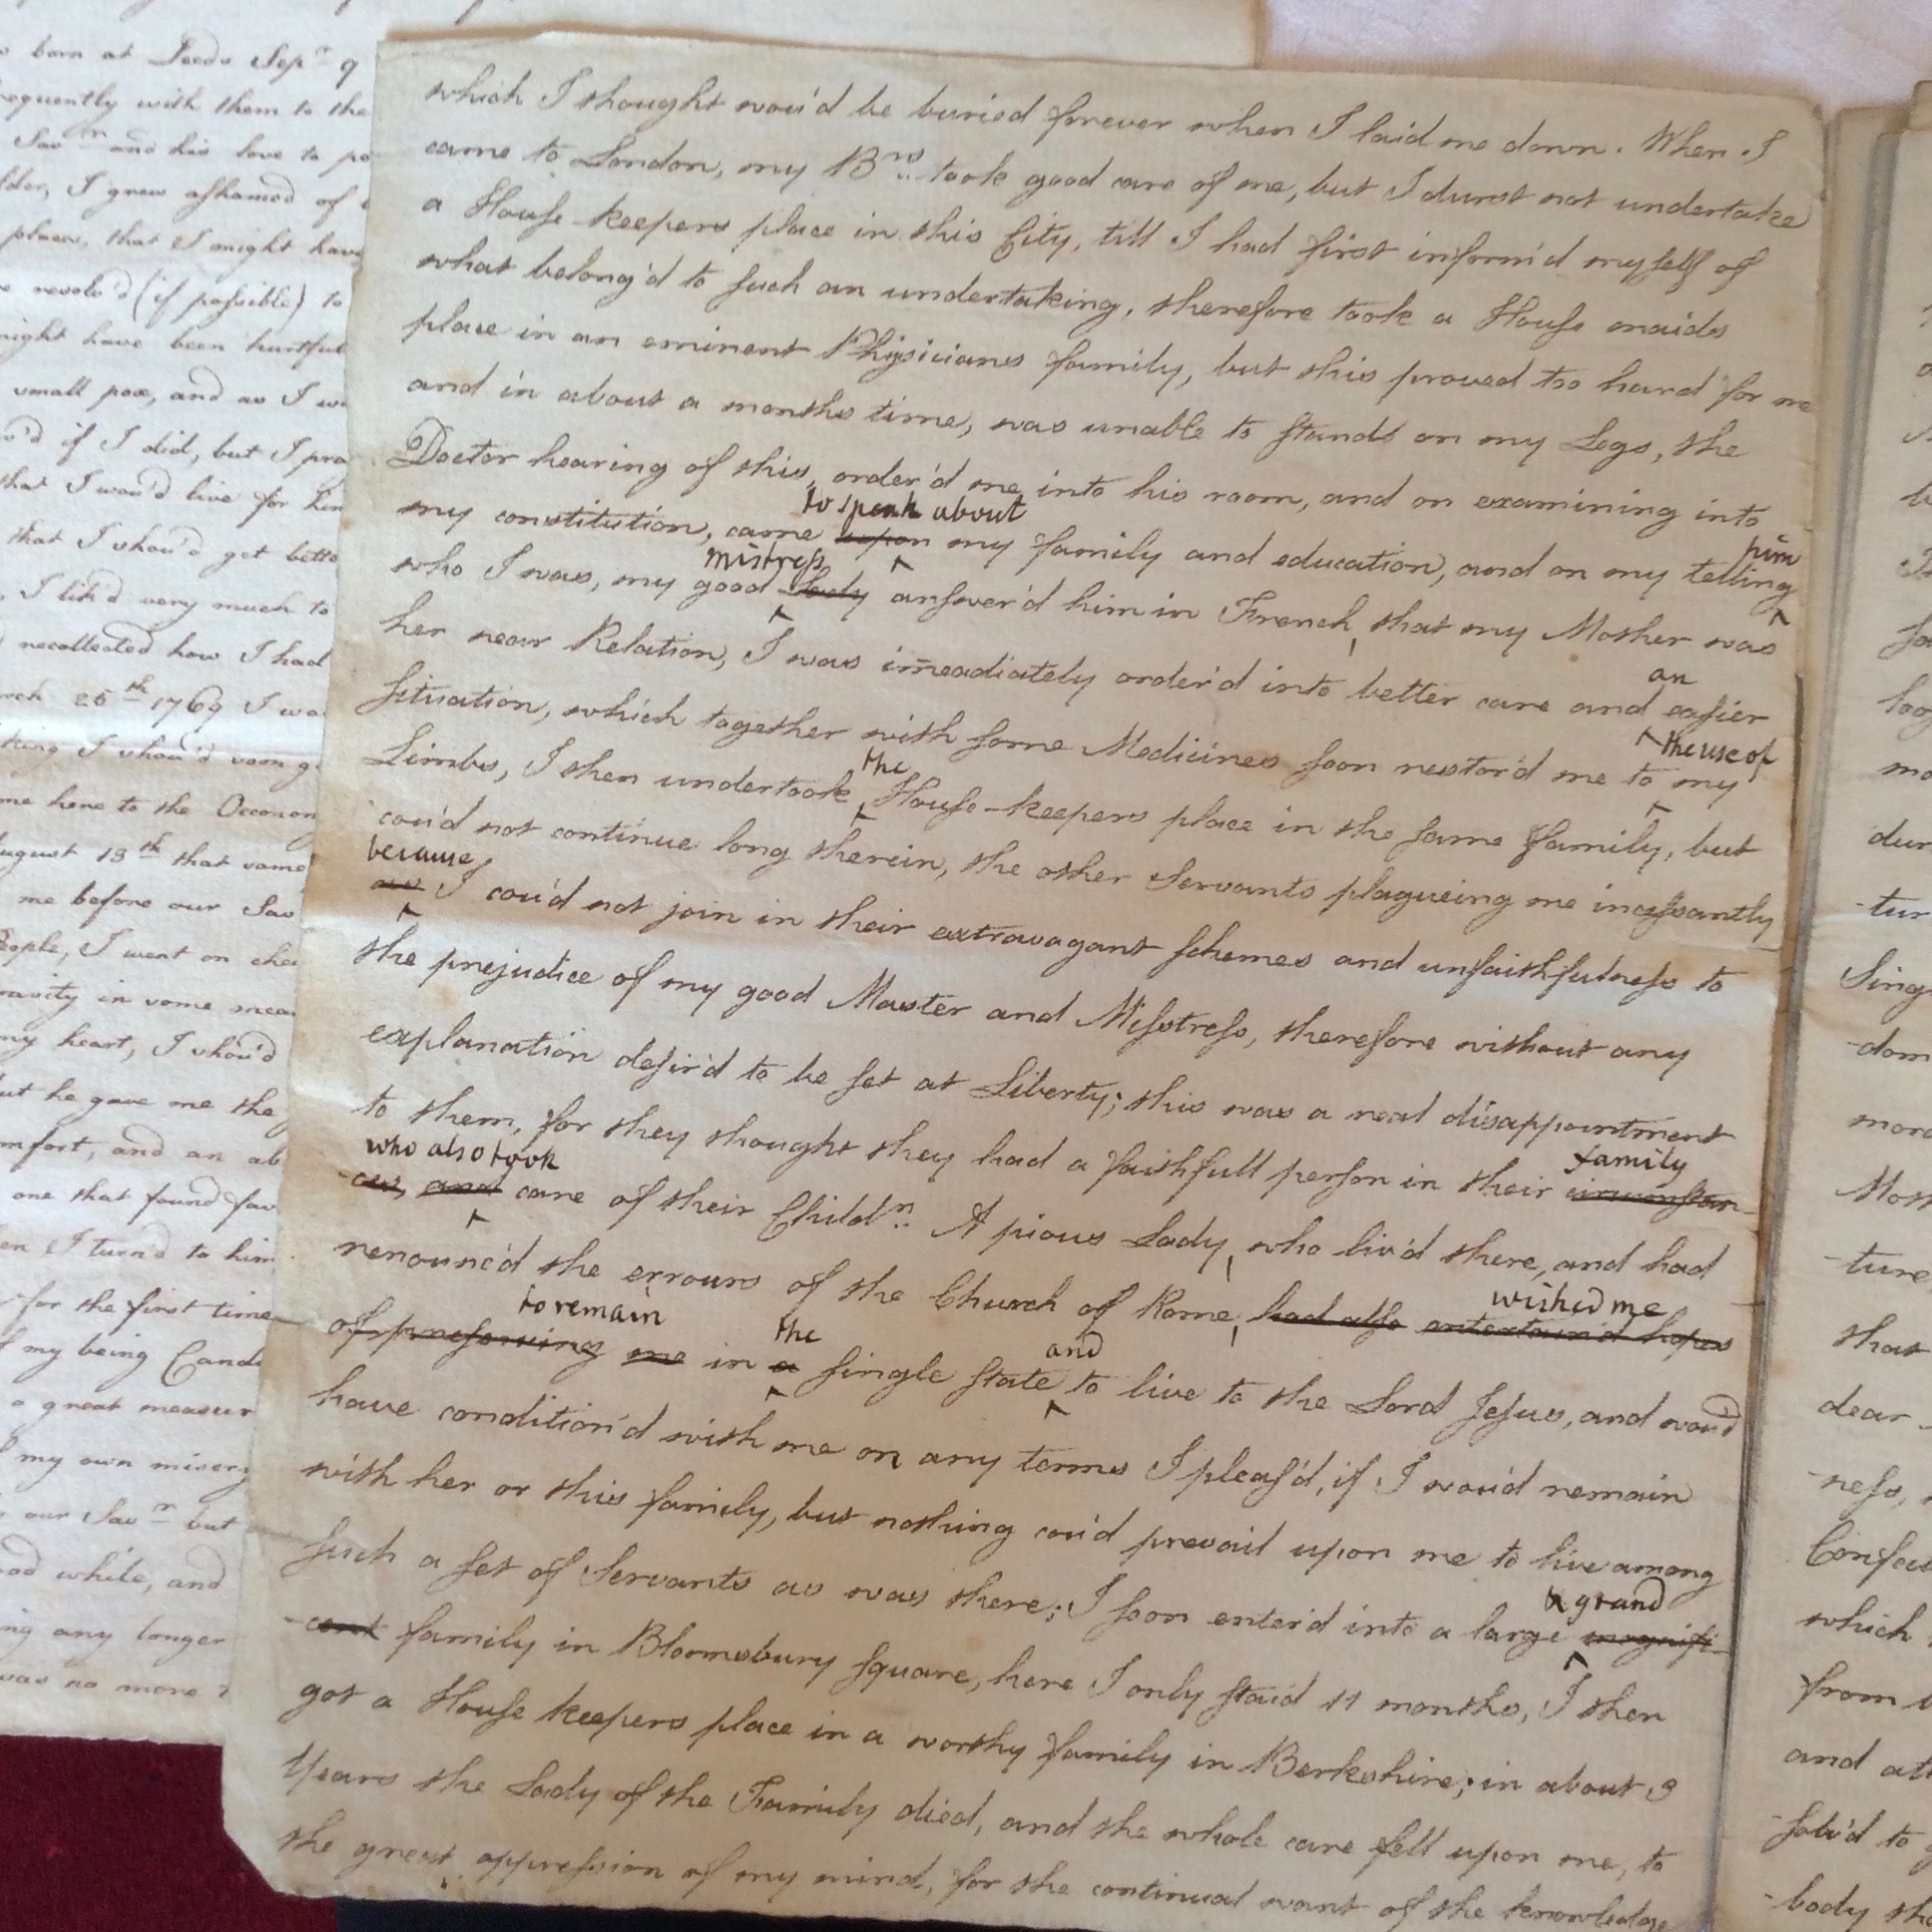 o born at Leeds Sepr 9
requently with them to the
Savr and his love to po
lder, I grew ashamed of
place, that I might have
resolv'd (if possible) to
night have been hurtful
small pox, and as I wa
'd if I did, but I pra
that I wou'd live for him
that I shou'd get bette
, I lik'd very much to
recollected how I had
rch 25th 1769 I wa
king I shou'd soon g
me here to the Oeconom
August 13th that same
me before our Sav
eople, I went on chea
ravity in some mea
my heart, I shou'd
but he gave me the
mfort, and an ab
one that found fav
en I turn'd to him
for the first time
f my being Candi
a great measur
my own misery
our Savr but
od while, and
ng any longer
was no more
which I thought wou'd be buried forever when I laid me down. When I
came to London, my Brs took good care of me, but I durst not undertake
a House-keepers place in this City, till I had first inform'd myself of
what belong'd to such an undertaking, therefore took a House maids
place in an eminent Physicians family, but this proved too hard for me
and in about a months time, was unable to stand on my Legs, the
Doctor hearing of this, order'd me into his room, and on examining into
to speak about
my constitution, came upon my family and education, and on my telling
him
mistress
who I was, my good Lady answer'd him in French, that my Mother was
her near Relation, I was imeadiately order'd into better care and easier
an
situation, which together with some Medicines soon restor'd me to my
the use of
the
Limbs, I then undertook House-keepers place in the same family, but
cou'd not continue long therein, the other Servants plagueing me incessantly
because
as I cou'd not join in their extravagant schemes and unfaithfulness to
the prejudice of my good Master and Misstress, therefore without any
explanation desir'd to be set at Liberty; this was a real disappointment
to them, for they thought they had a faithfull person in their circumstan-
family
who also took
-ces, and care of their Childn. A pious Lady, who liv'd there, and had
renounc'd the errours of the Church of Rome, had also entertain'd hopes
wished me
to remain
the
and
of preserving me in a single state to live to the Lord Jesus, and wou'd
have condition'd with me on any terms I pleas'd, if I wou'd remain
with her or this family, but nothing cou'd prevail upon me to live among
such a set of Servants as was there; I soon enter'd into a large magnifi-
& grand
-cent family in Bloomsbury square, here I only staid 11 months, I then
got a House keepers place in a worthy family in Berkshire; in about 3
Years the Lady of the Family died, and the whole care fell upon me, to
the great oppression of my mind, for the continual want of the knowledge
dur
-tur
Sing
-dom
more
Most
-ture
that
dear
-ness,
Confes
which
from
and att
-solv'd to
-body the